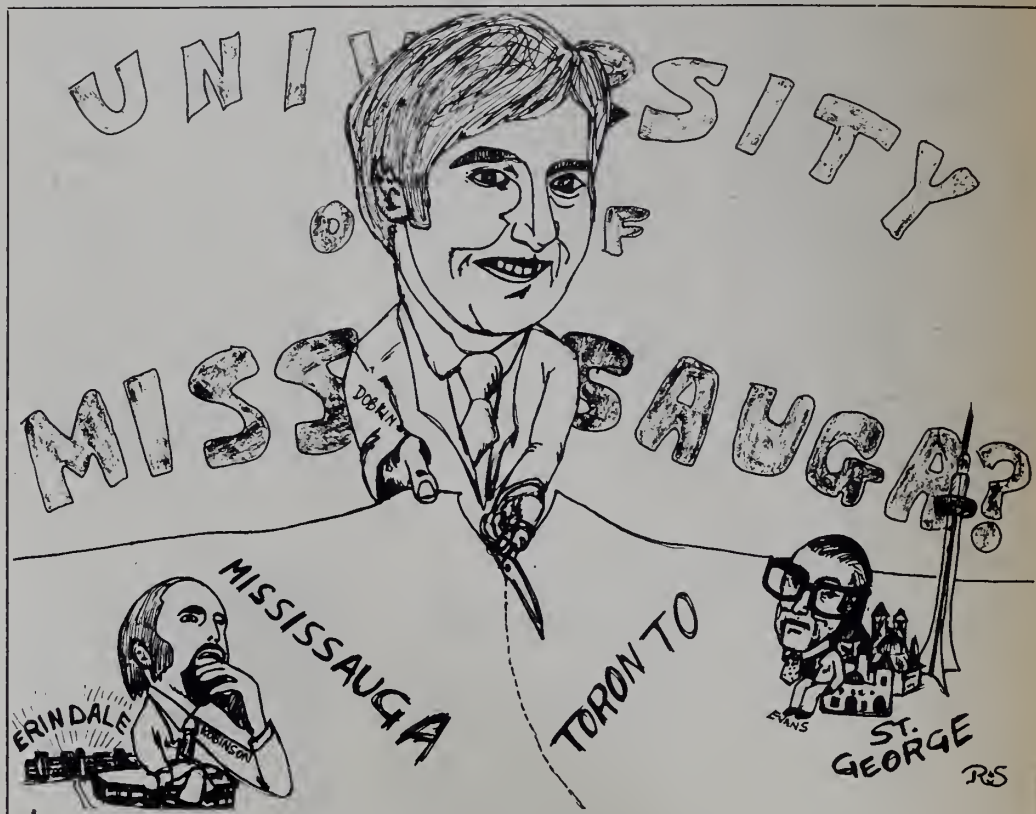 UNIVERSITY
OF
MISSISSAUGA?
DOBKIN
MISSISSAUGA
TORONTO
ERINDALE
ROBINSON
EVANS
ST.
GEORGE
R&S